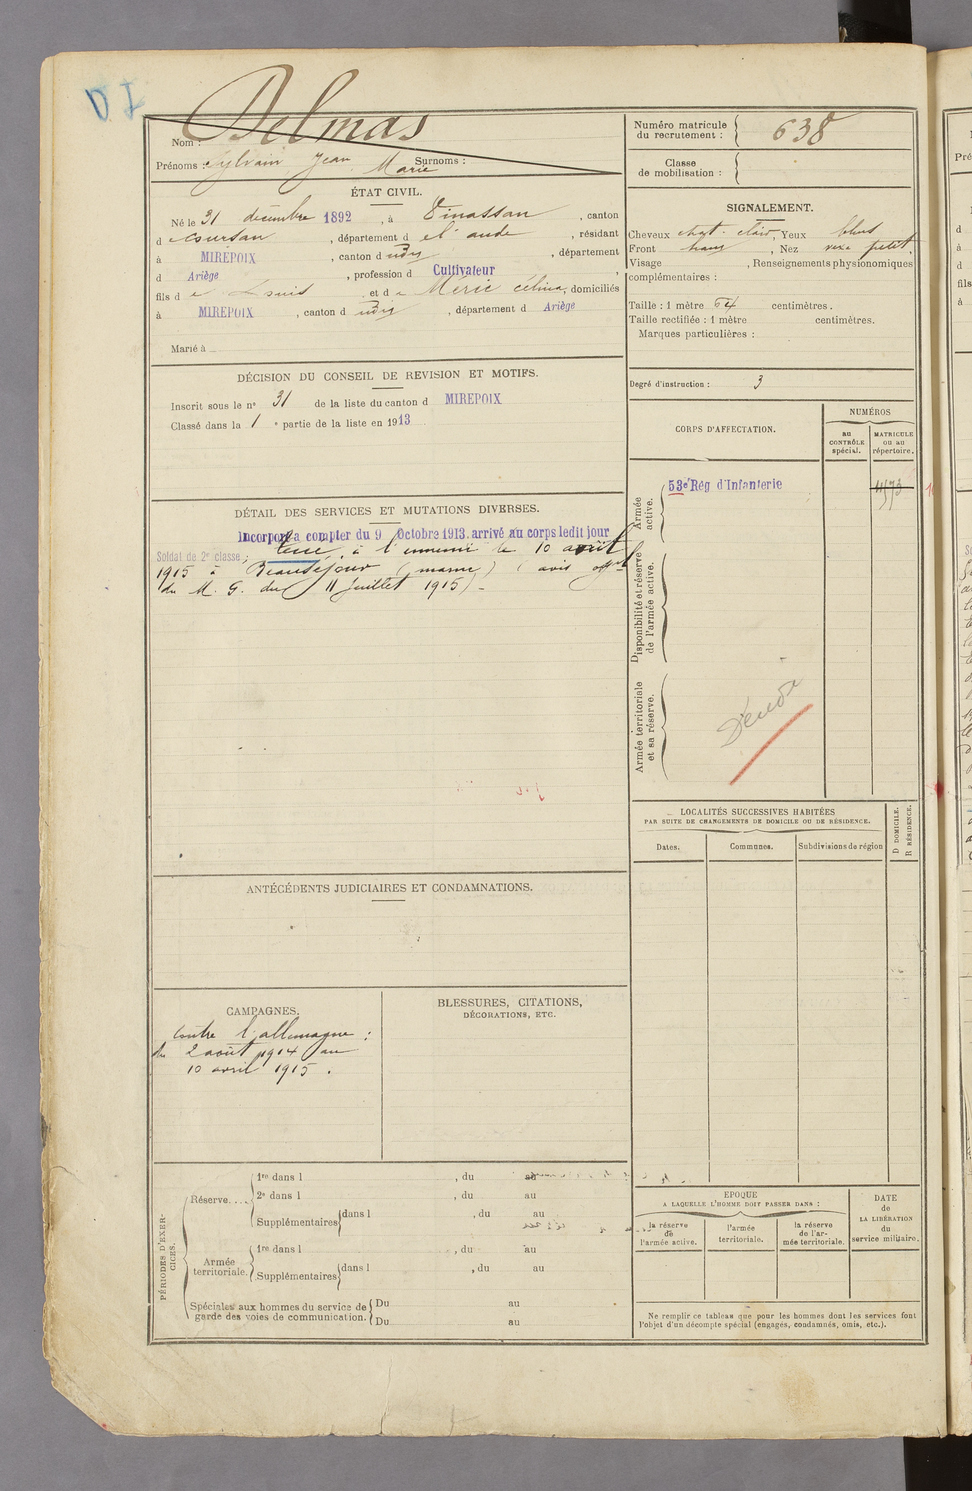 Delmas
Nom :
Prénoms : Sylvain Jean Marie Surnoms :
Numéro matricule
du recrutement : 638
Classe
de mobilisation :
ÉTAT CIVIL.
Né le 31 décembre 1892, à Vinassan, canton
d e Coursan, département d e l'aude, résidant
à MIREPOIX, canton d udry, département
d Ariège, profession d Cultivateur,
fils d e Louis et d e Meric Célina, domiciliés
à MIREPOIX, canton d udry, département d Ariège
Marié à
SIGNALEMENT.
Cheveux chat. clair, Yeux bleus
Front , Nez petit
Visage , Renseignements physionomiques
complémentaires :
Taille : 1 mètre 64 centimètres.
Taille rectifiée : 1 mètre centimètres.
Marques particulières :
Degré d'instruction : 3
DÉCISION DU CONSEIL DE REVISION ET MOTIFS.
Inscrit sous le n° 31 de la liste du canton d MIREPOIX
Classé dans la 1 e partie de la liste en 1913
CORPS D'AFFECTATION.
NUMÉROS
au
CONTRÔLE
spécial.
MATRICULE
ou au
répertoire.
Armée
active.
53e Rég d'Infanterie
Disponibilité et réserve
de l'armée active.
Armée territoriale
et sa réserve.
DÉTAIL DES SERVICES ET MUTATIONS DIVERSES.
Incorporé a compter du 9 Octobre 1913. arrivé au corps ledit jour
Soldat de 2e classe ; Tué à l'ennemi le 10 avril
1915 à Beauséjour (marne) (avis off
du M. G. du 11 Juillet 1915) -
LOCALITÉS SUCCESSIVES HABITÉES
PAR SUITE DE CHANGEMENTS DE DOMICILE OU DE RÉSIDENCE.
Dates.
Communes.
Subdivisions de région
D DOMICILE.
R RÉSIDENCE.
ANTÉCÉDENTS JUDICIAIRES ET CONDAMNATIONS.
CAMPAGNES.
Contre l'allemagne :
du 2 août 1914 au
10 avril 1915.
BLESSURES, CITATIONS,
DÉCORATIONS, ETC.
PÉRIODES D'EXER-
CICES.
Réserve....
1re dans l , du au
2e dans l , du au
Supplémentaires dans l , du au
Armée
territoriale.
1re dans l , du au
Supplémentaires dans l , du au
Spéciales aux hommes du service de
garde des voies de communication.
Du au
Du au
EPOQUE
A LAQUELLE L'HOMME DOIT PASSER DANS :
la réserve
de
l'armée active.
l'armée
territoriale.
la réserve
de l'ar-
mée territoriale.
DATE
de
LA LIBÉRATION
du
service militaire.
Ne remplir ce tableau que pour les hommes dont les services font
l'objet d'un décompte spécial (engagés, condamnés, omis, etc.).